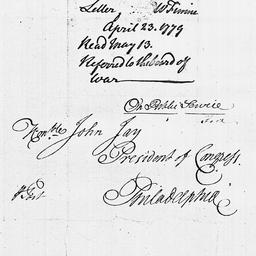 Letter W Finnie
April 23. 1779
Read May 13.
Referred to the board of
war
On Public Service
Honble John Jay
President of Congress.
Philadelphia